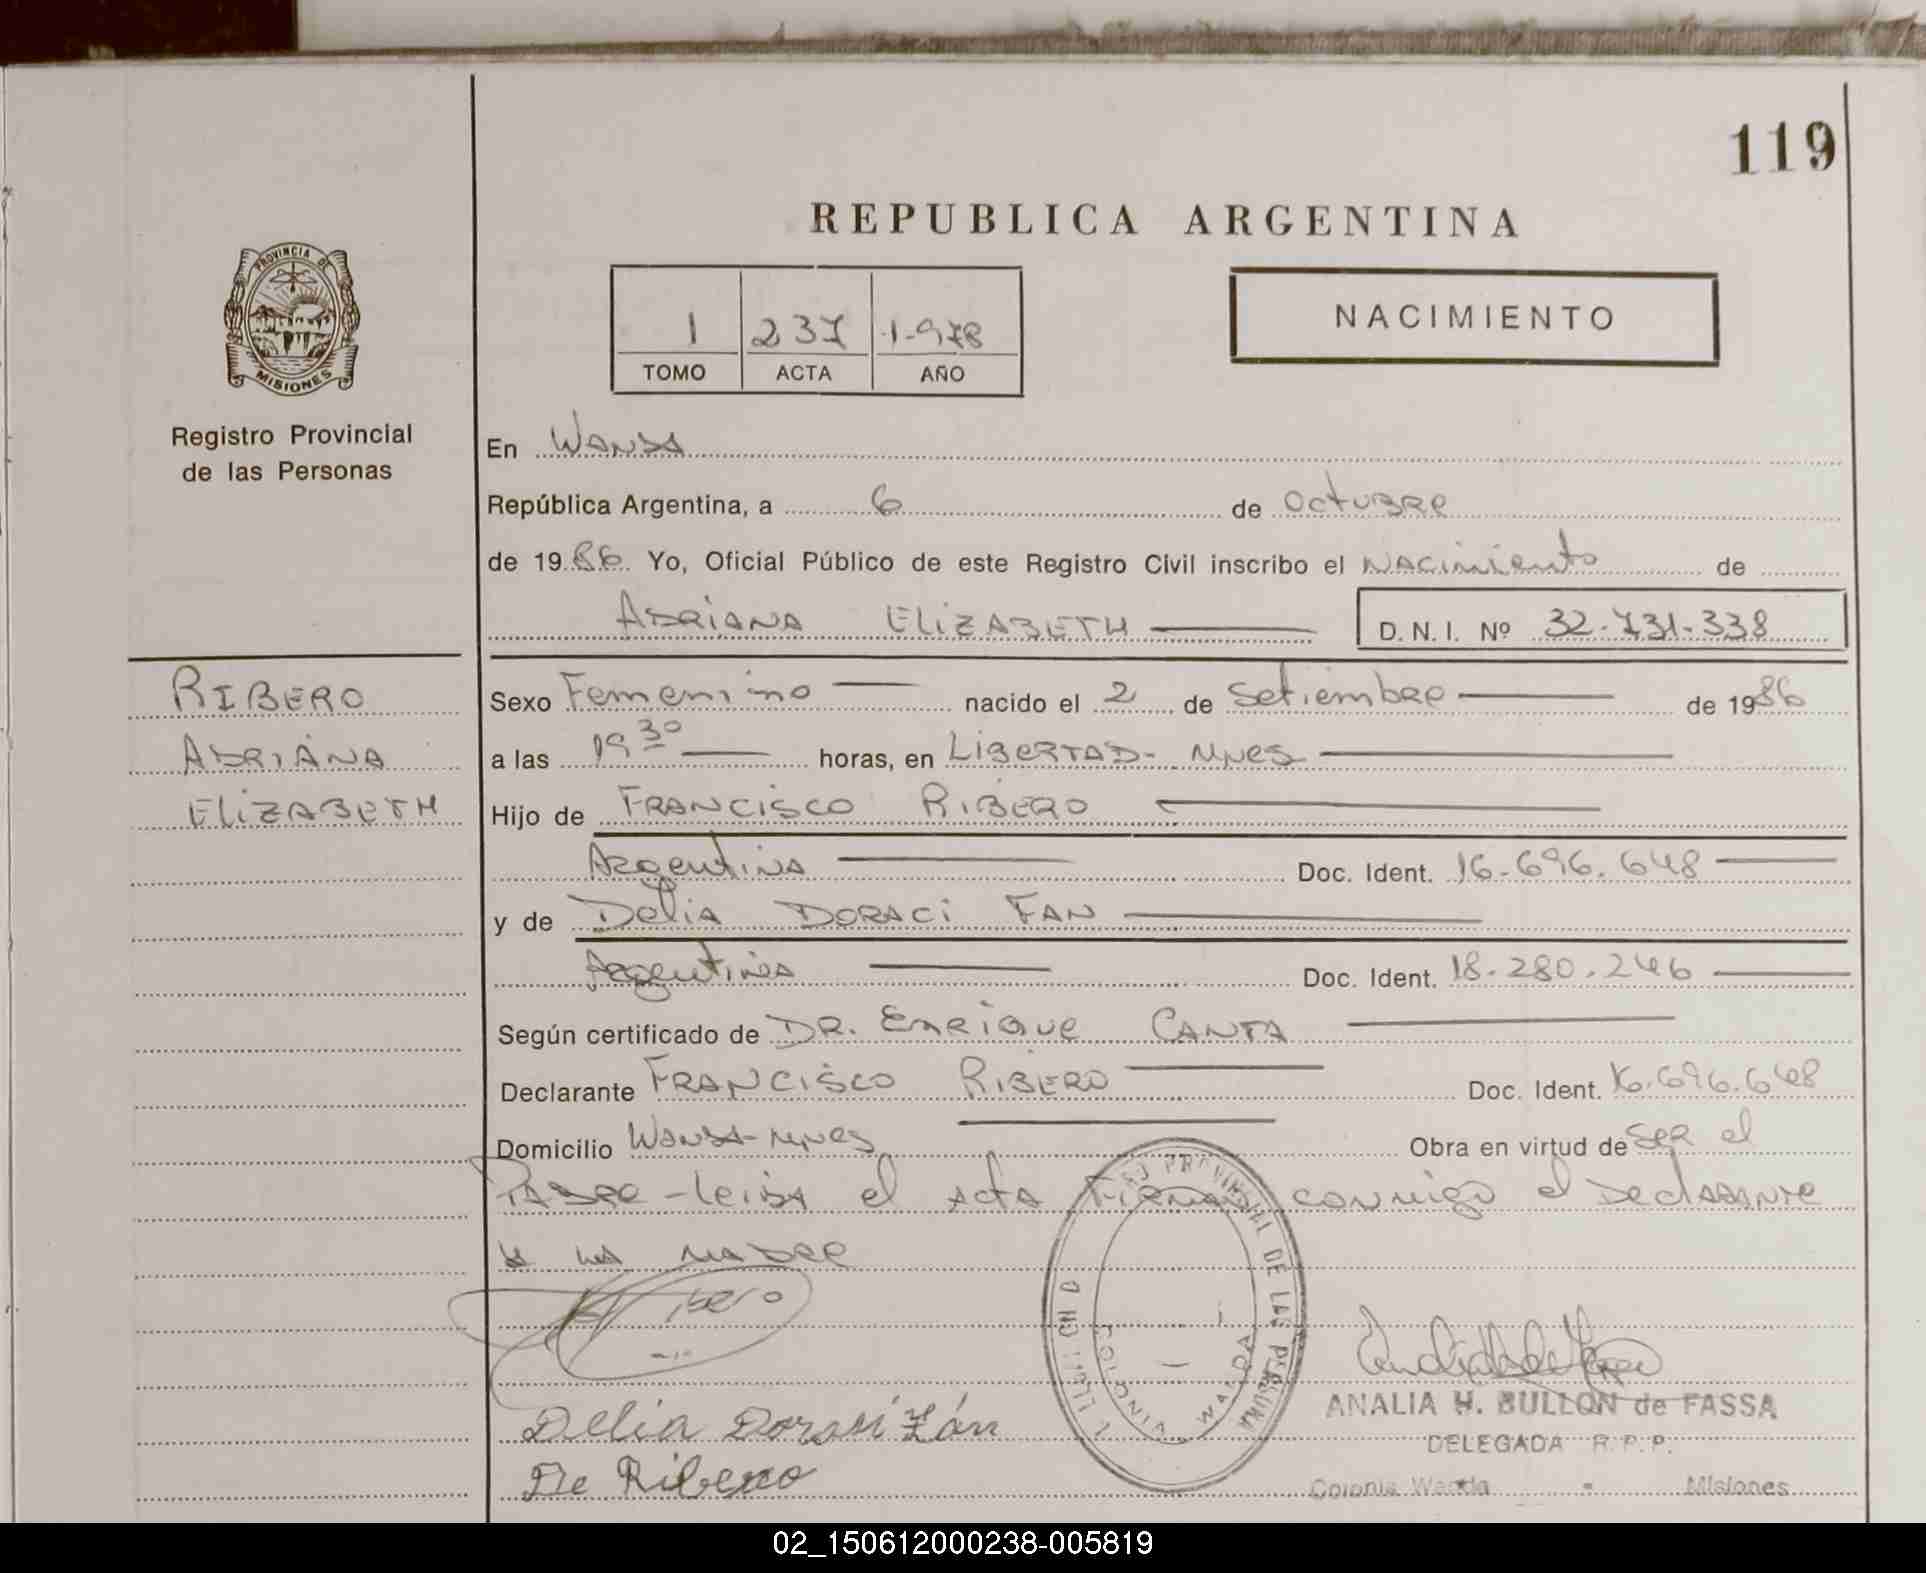 119
REPUBLICA ARGENTINA
PROVINCIA DE
MISIONES
Registro Provincial
de las Personas
1 237 1.978
TOMO ACTA AÑO
NACIMIENTO
En Wanda
República Argentina, a 6 de Octubre
de 1986. Yo, Oficial Público de este Registro Civil inscribo el Nacimiento de
ADRIANA ELIZABETH D.N.I. Nº 32.731.338
RIBERO
ADRIANA
ELIZABETH
Sexo Femenino nacido el 2 de Setiembre de 1986
a las 19 30 horas, en LIBERTAD- Mnes
Hijo de FRANCISCO RIBERO
Argentina Doc. Ident. 16.696.648
y de Delia DORACI FAN
Argentina Doc. Ident. 18.280.246
Según certificado de DR. Enrique CANTA
Declarante FRANCISCO RIBERO Doc. Ident. 16.696.648
Domicilio Wanda-Mnes Obra en virtud de ser el
PADRE - leida el acta firman conmigo el Declarante
y la MADRE
Ribero
Delia Doraci Fán
De Ribero
PROVINCIAL DE LAS PERSONAS
COLONIA WANDA
ANALIA H. BULLON de FASSA
DELEGADA R.P.P.
Colonia Wanda - Misiones
02_150612000238-005819